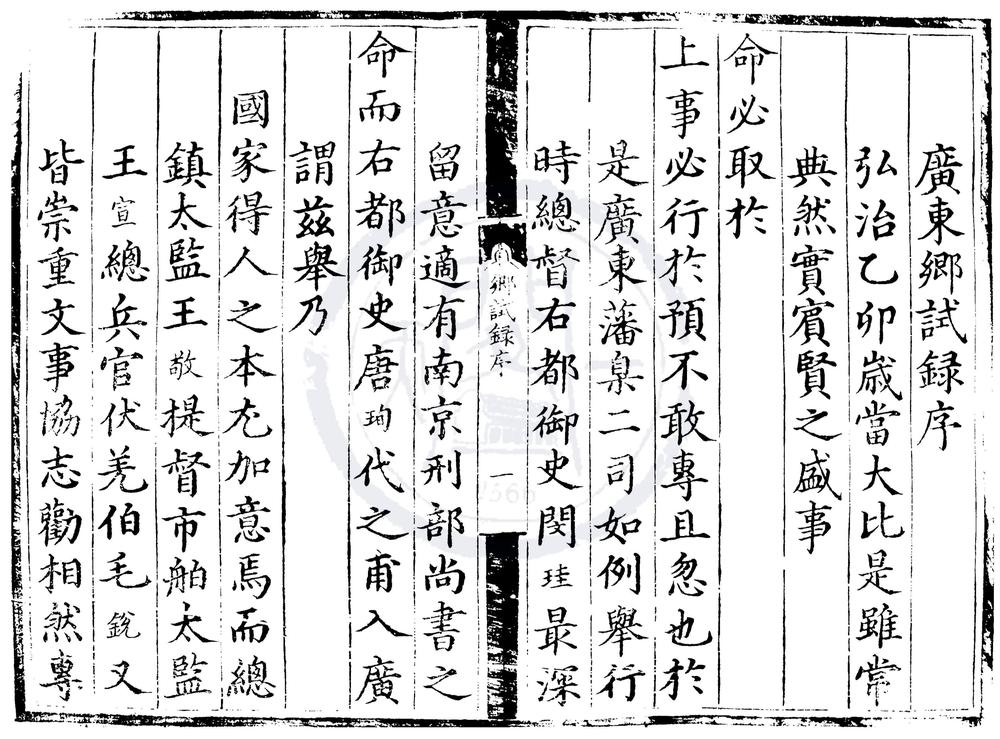 廣東鄉試録序
弘治乙卯歲當大比是雖常
典然實賓賢之盛事
命必取於
上事必行於預不敢專且忽也於
是廣東藩臬二司如例舉行
時總督右都御史閔珪最深
鄉試録序
一
留意適有南京刑部尚書之
命而右都御史唐珣代之甫入廣
謂茲舉乃
國家得人之本尤加意焉而總
鎮太監王敬提督市舶太監
王宣總兵官伏羌伯毛銳又
皆崇重文事協志勸相然專
1566